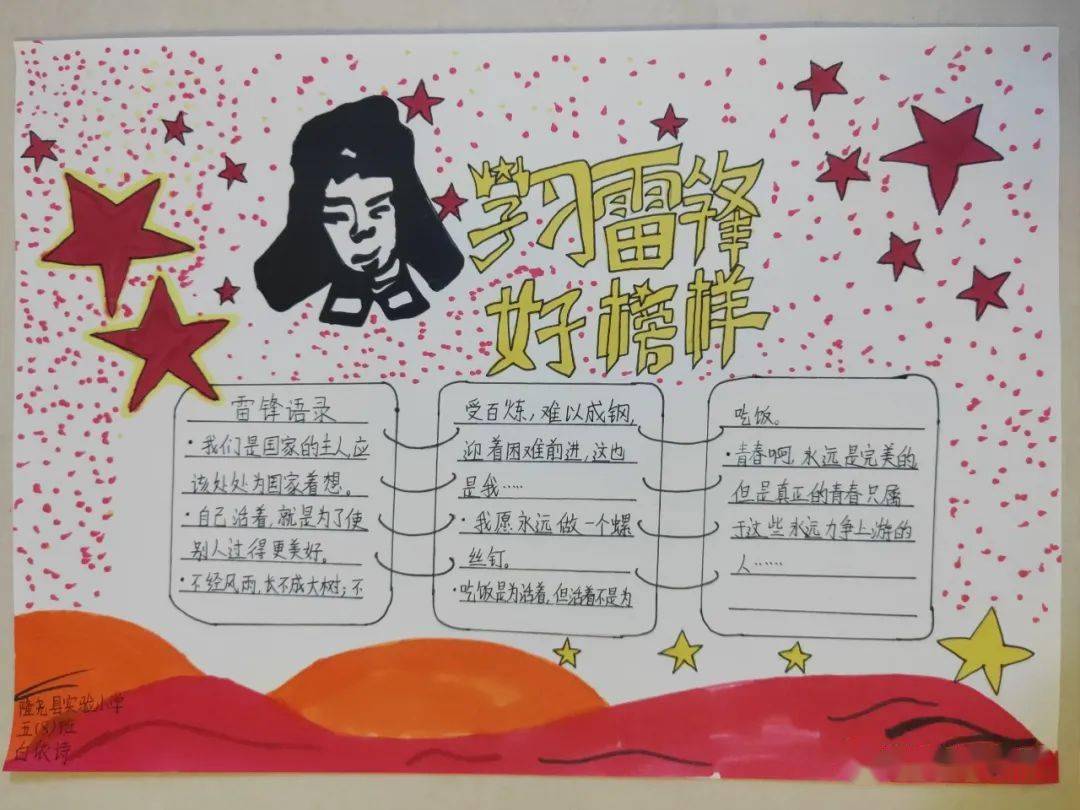 学习雷锋
好榜样
雷锋语录
·我们是国家的主人,应
该处处为国家着想。
·自己活着,就是为了使
别人过得更美好。
·不经风雨,长不成大树;不
受百炼,难以成钢,
迎着困难前进,这也
是我……
·我愿永远做一个螺
丝钉。
·吃饭是为活着,但活着不是为
吃饭。
·青春啊,永远是完美的
但是真正的青春只属
于这些永远力争上游的
人……
隆尧县实验小学
五(8)班
白依诗